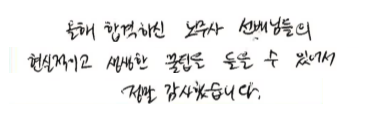 올해 합격하신 노무사 선배님들의
현실적이고 생생한 꿀팁을 들을 수 있어서
정말 감사했습니다.